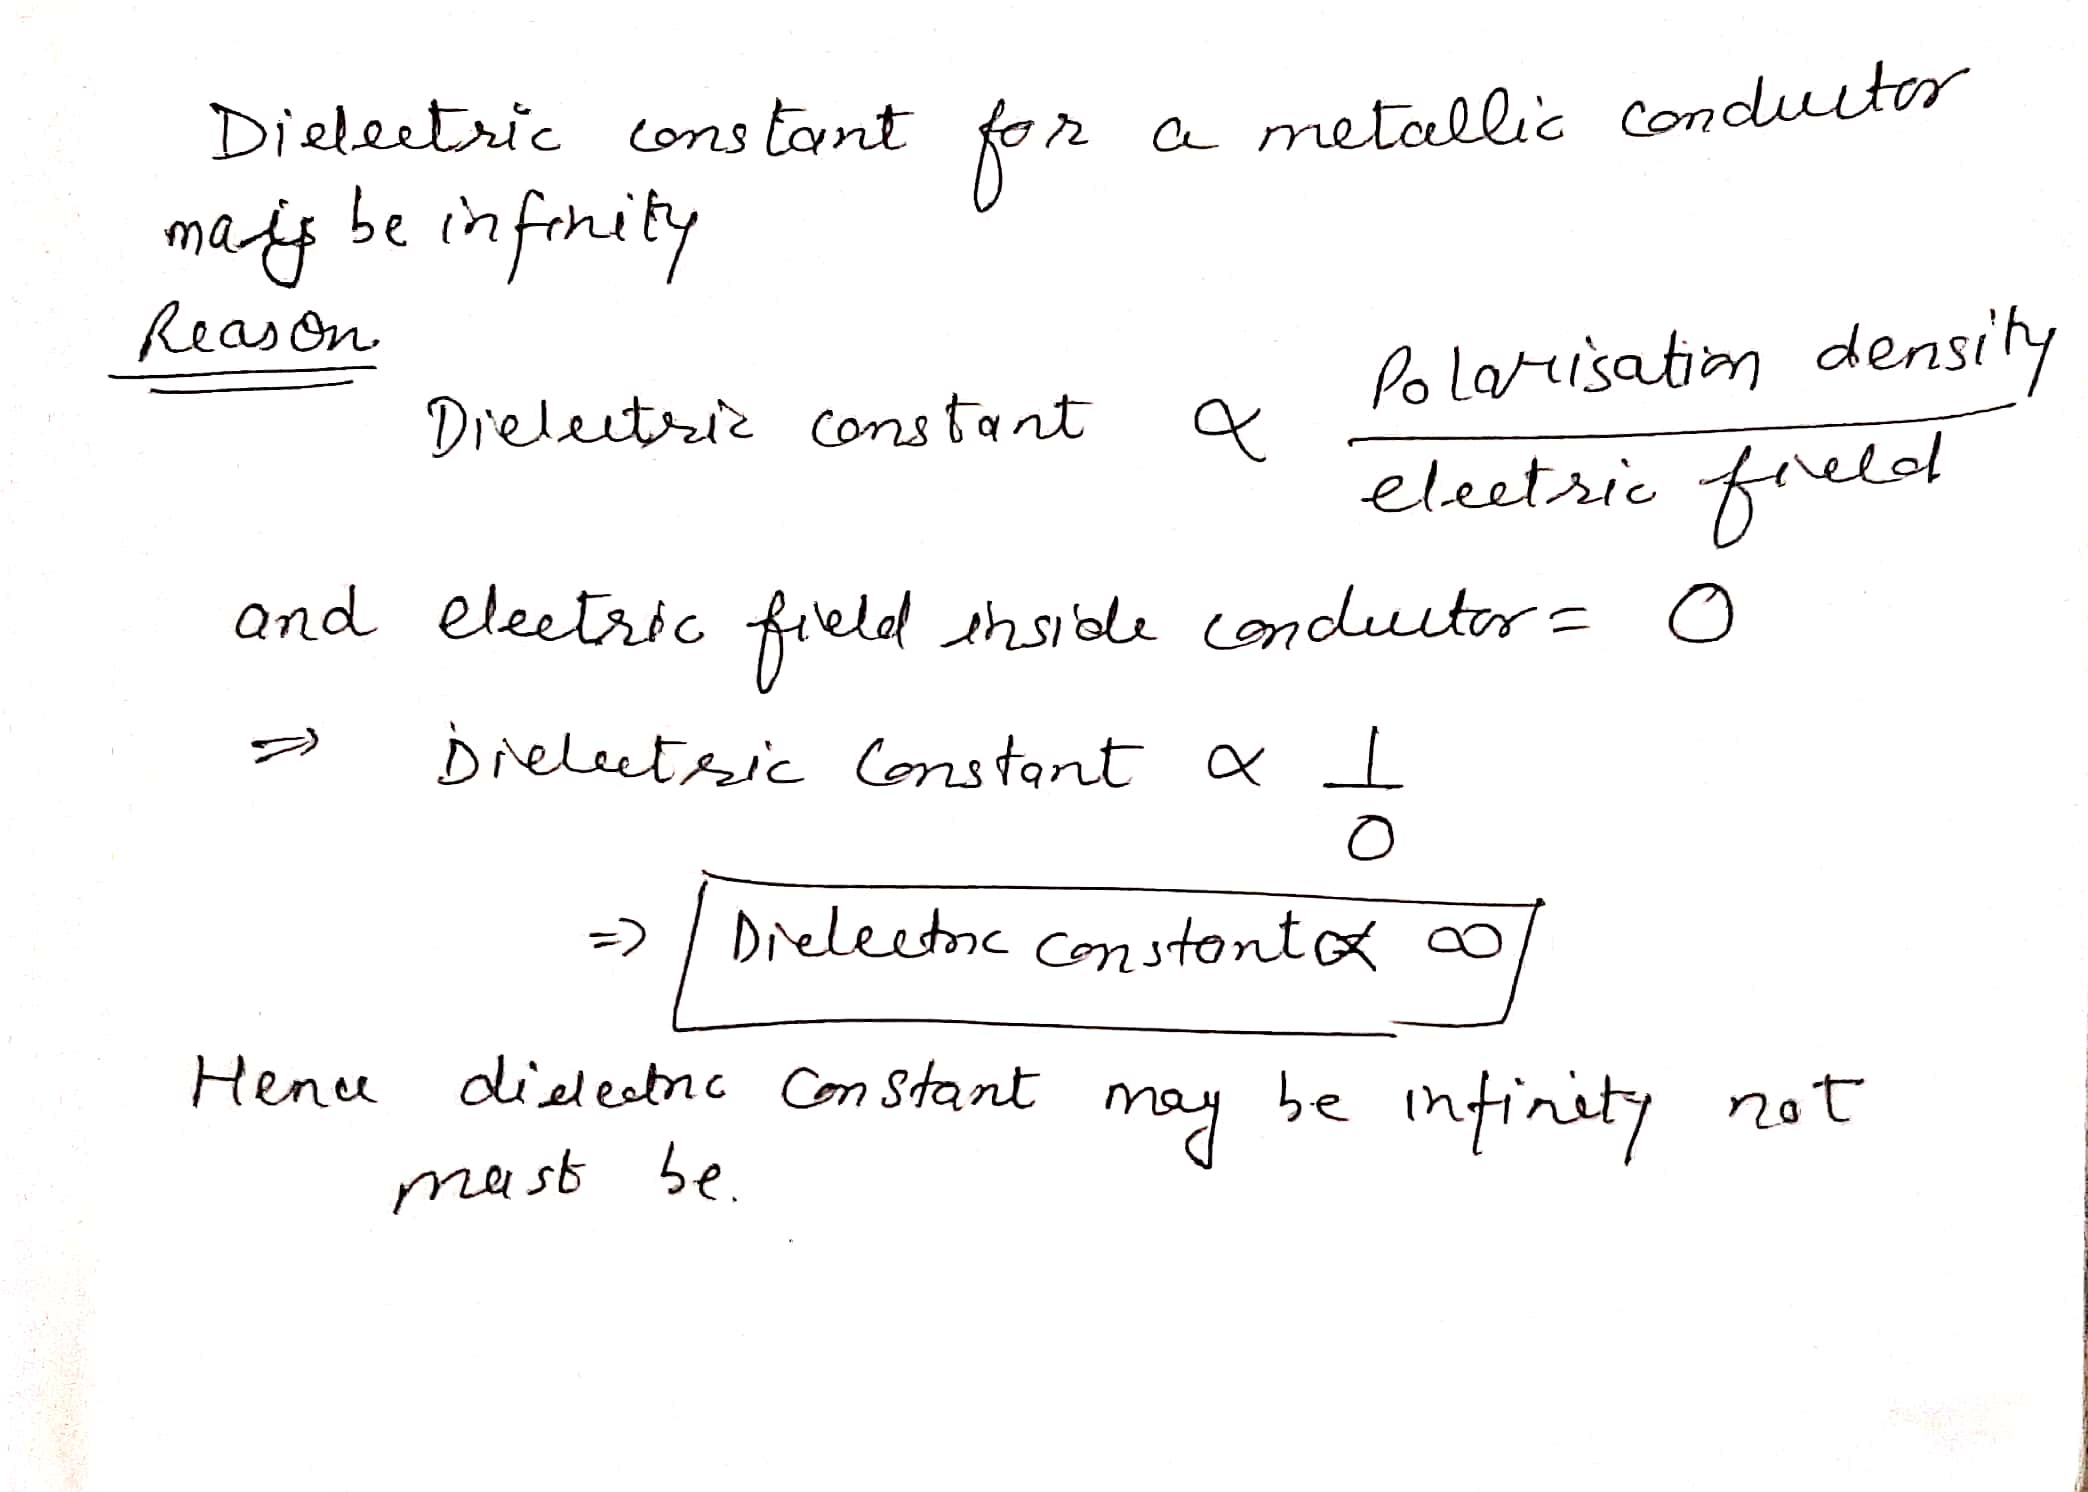 Dielectric constant for a metallic conductor
may be infinity
Reason
Dielectric constant ∝ Polarisation density
electric field
and electric field inside conductor = 0
⇒ Dielectric Constant ∝ 1
0
⇒ Dielectric constant ∝ ∞
Hence dielectric constant may be infinity not
must be.